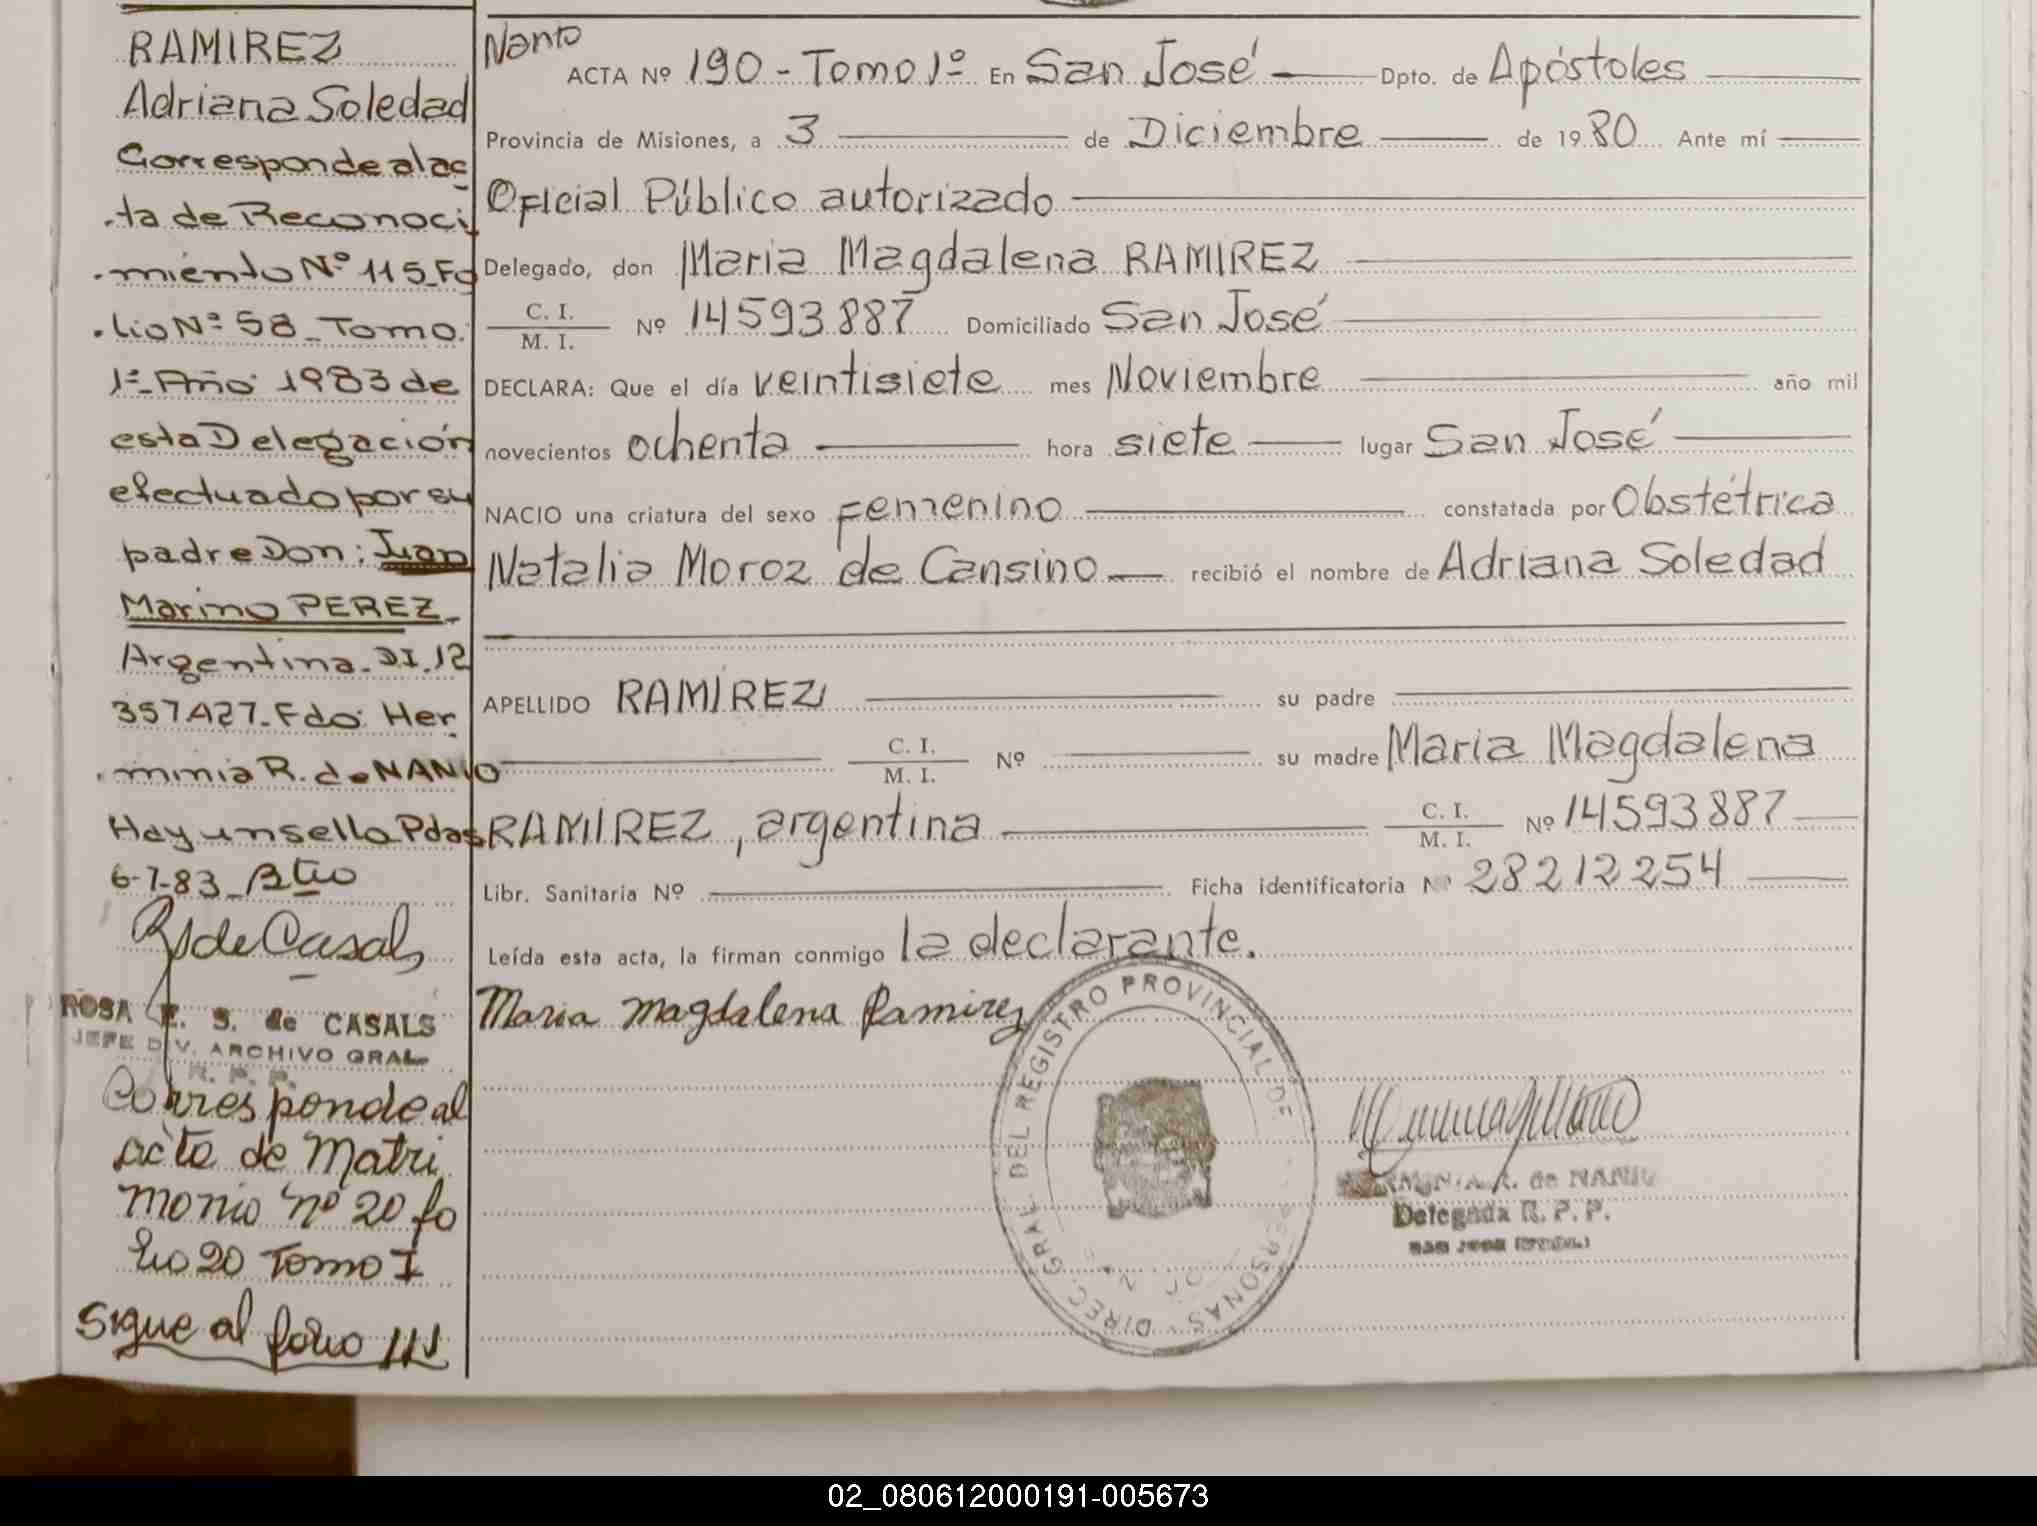 RAMIREZ
Adriana Soledad
Corresponde al ac
ta de Reconoci
miento Nº 115_Fo
lio Nº 58_Tomo
1º_Año 1983 de
esta Delegación
efectuado por su
padre Don: Juan
Marino PEREZ_
Argentina_DI.12
357427_Fdo: Her
minia R. de NANIO
Hay un sello Pdas
6-7-83_
R S de Casals
ROSA E. S. de CASALS
JEFE DIV. ARCHIVO GRAL.
R. P. P.
Corresponde al
acta de Matri
monio nº 20 fo
lio 20 Tomo I
Sigue al folio 111
ACTA Nº 190 - Tomo 1º En San José Dpto. de Apóstoles
Provincia de Misiones, a 3 de Diciembre de 1980 Ante mí
Oficial Público autorizado
Delegado, don Maria Magdalena RAMIREZ
C. I.
M. I. Nº 14593887 Domiciliado San José
DECLARA: Que el día veintisiete mes Noviembre año mil
novecientos ochenta hora siete lugar San José
NACIO una criatura del sexo Femenino constatada por Obstétrica
Natalia Moroz de Cansino recibió el nombre de Adriana Soledad
APELLIDO RAMÍREZ su padre
C. I.
M. I. Nº su madre Maria Magdalena
RAMÍREZ, argentina C. I.
M. I. Nº 14593887
Libr. Sanitaria Nº Ficha identificatoria Nº 28212254
Leída esta acta, la firman conmigo la declarante.
Maria Magdalena Ramirez
DIREC. GRAL. DEL REGISTRO PROVINCIAL DE PERSONAS
R. de NANIO
Delegada R. P. P.
02_080612000191-005673